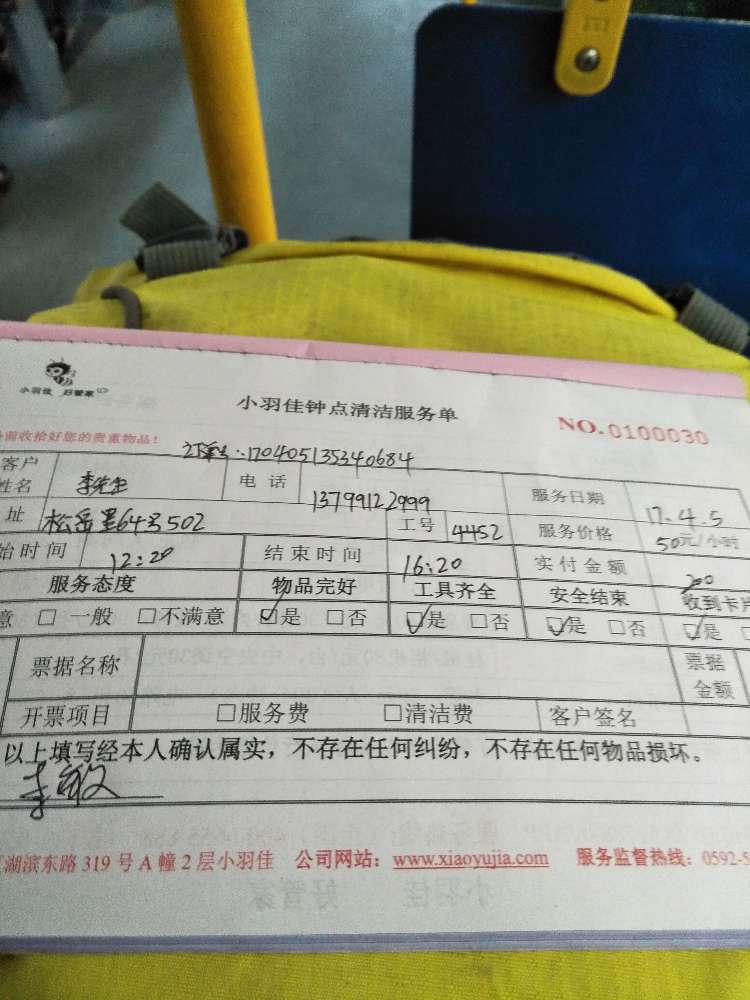 小羽佳 好管家
小羽佳钟点清洁服务单
NO.0100030
前收拾好您的贵重物品!
订单号:170405135340684
客户姓名 李先生 电话 13799122999 服务日期 17.4.5
址 松岳里64号502 工号 4452 服务价格 50元/小时
始时间 12:20 结束时间 16:20 实付金额 200
服务态度 物品完好 工具齐全 安全结束 收到卡片
意 □ 一般 □不满意 ☑是 □否 ☑是 □否 ☑是 □否 ☑是
票据名称 票据金额
开票项目 □服务费 □清洁费 客户签名
以上填写经本人确认属实,不存在任何纠纷,不存在任何物品损坏。
李敏
湖滨东路 319 号 A 幢 2 层小羽佳 公司网站:www.xiaoyujia.com 服务监督热线:0592-5